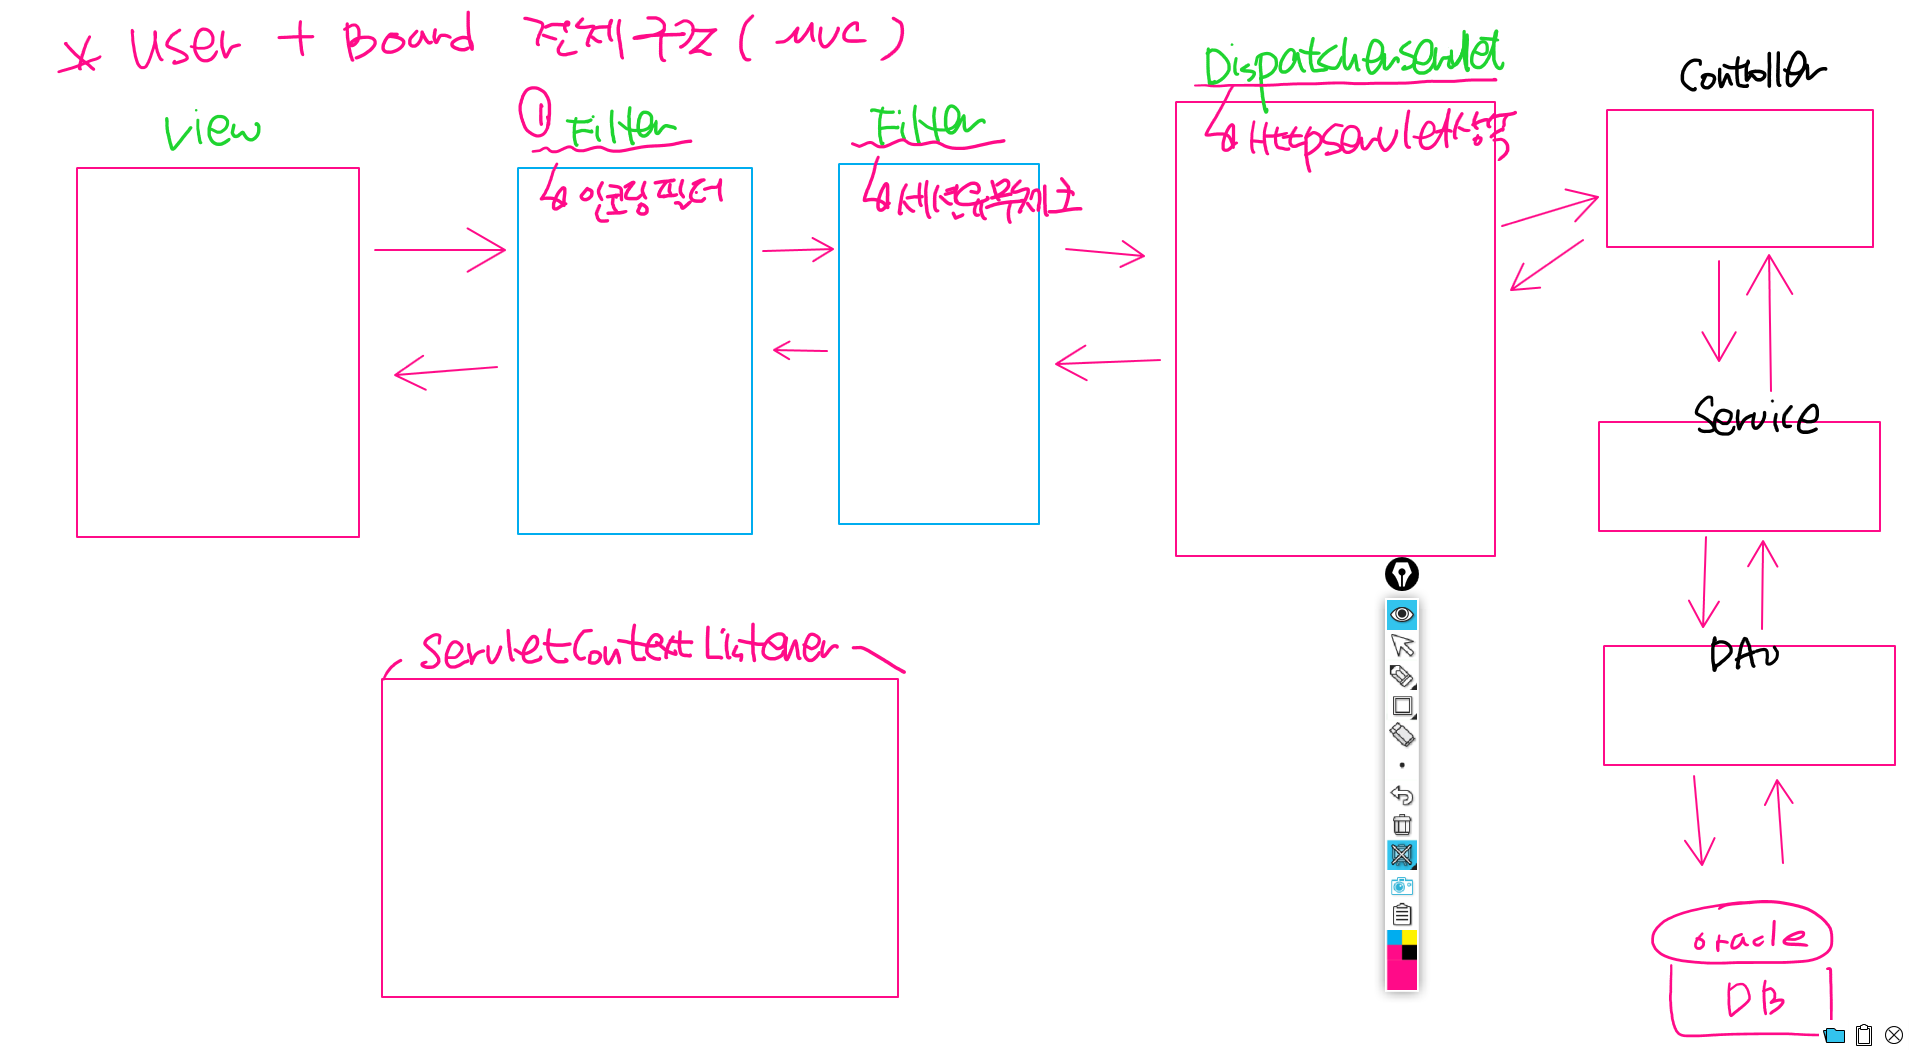 * User + Board 전체구조 (MVC)
View
① Filter
인코딩 필터
Filter
세션유무체크
DispatscherServlet
HttpServlet상속
Controller
Service
DAO
oracle
DB
ServletContextListener